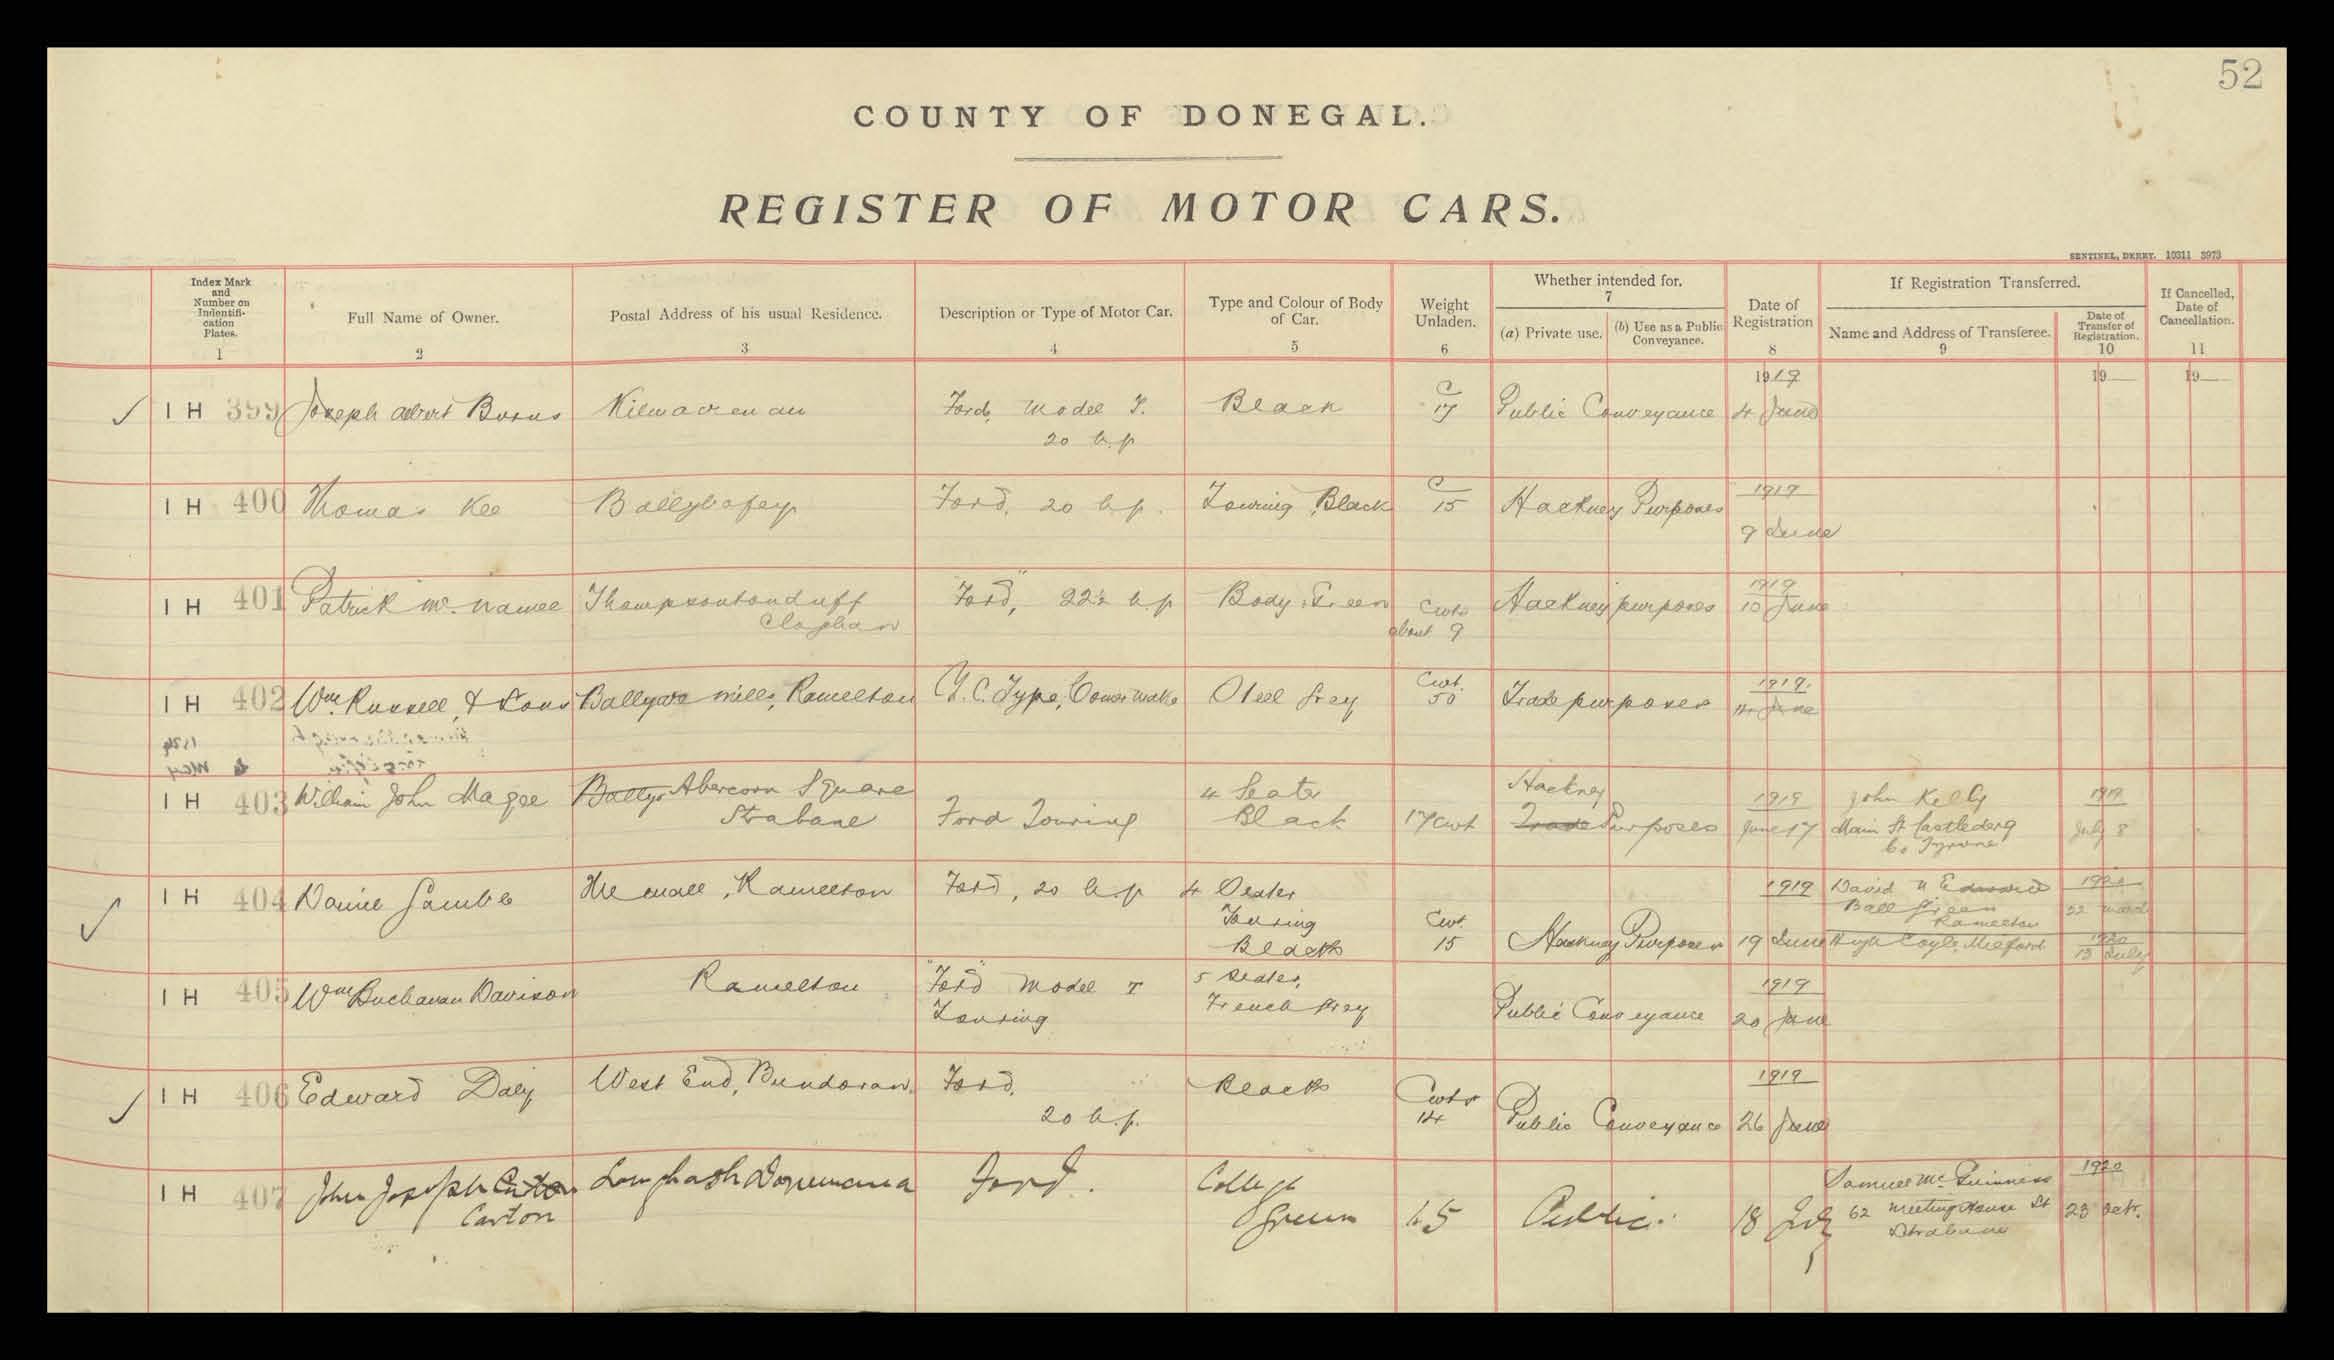 52
COUNTY OF DONEGAL.
REGISTER OF MOTOR CARS.
SENTINEL, DERRY. 10311 3973
Index Mark and Number on Indentifi-cation Plates. 1
Full Name of Owner. 2
Postal Address of his usual Residence. 3
Description or Type of Motor Car. 4
Type and Colour of Body of Car. 5
Weight Unladen. 6
Whether intended for. 7
(a) Private use.
(b) Use as a Public Conveyance.
Date of Registration 8
If Registration Transferred.
Name and Address of Transferee. 9
Date of Transfer of Registration. 10
If Cancelled, Date of Cancellation. 11
1919 19 19
I H 399 Joseph Albert Burns Kilmacrenan Ford, Model T. Black C 17 Public Conveyance 4 June
20 h.p
I H 400 Thomas Kee Ballybofey Ford, 20 h.p. Touring, Black C 15 Hackney Purposes 1919
9 June
I H 401 Patrick Mc Namee Thompson "Ford", 22½ h.p Body, Green Cwts about 9 Hackney purposes 1919 10 June
Cloghan
I H 402 Wm. Russell, & Sons Mills, Ramelton Y.C. Type, make Steel Grey Cwt. 50 Trade purposes 1919. June
I H 403 William John Magee Ballyr Abercorn Square Strabane Ford Touring 4 Seater Black 17 cwt Hackney Trade Purposes 1919 June 17 John Kelly Main St Castlederg Co Tyrone 1919 July 8
I H 404 The Mall, Ramelton Ford, 20 h.p 4 Seater Touring Black Cwt. 15 Hackney Purposes 1919 19 June David Ramelton
Hugh Coyle, Milford 1920 13 July
I H 405 Wm Buchanan Davison Ramelton "Ford" Model T Touring 5 Seater, French Grey Public Conveyance 1919 20 June
I H 406 Edward Daly West End, Bundoran. Ford, 20 h.p. Black Cwts 14 Public Conveyance 1919 26 June
I H 407 John Joseph Carton Loughash Donemana Ford. College Green 15 Public. 18 July Samuel Mc Guinness 62 Meeting House St Strabane 1920 23 Octr.